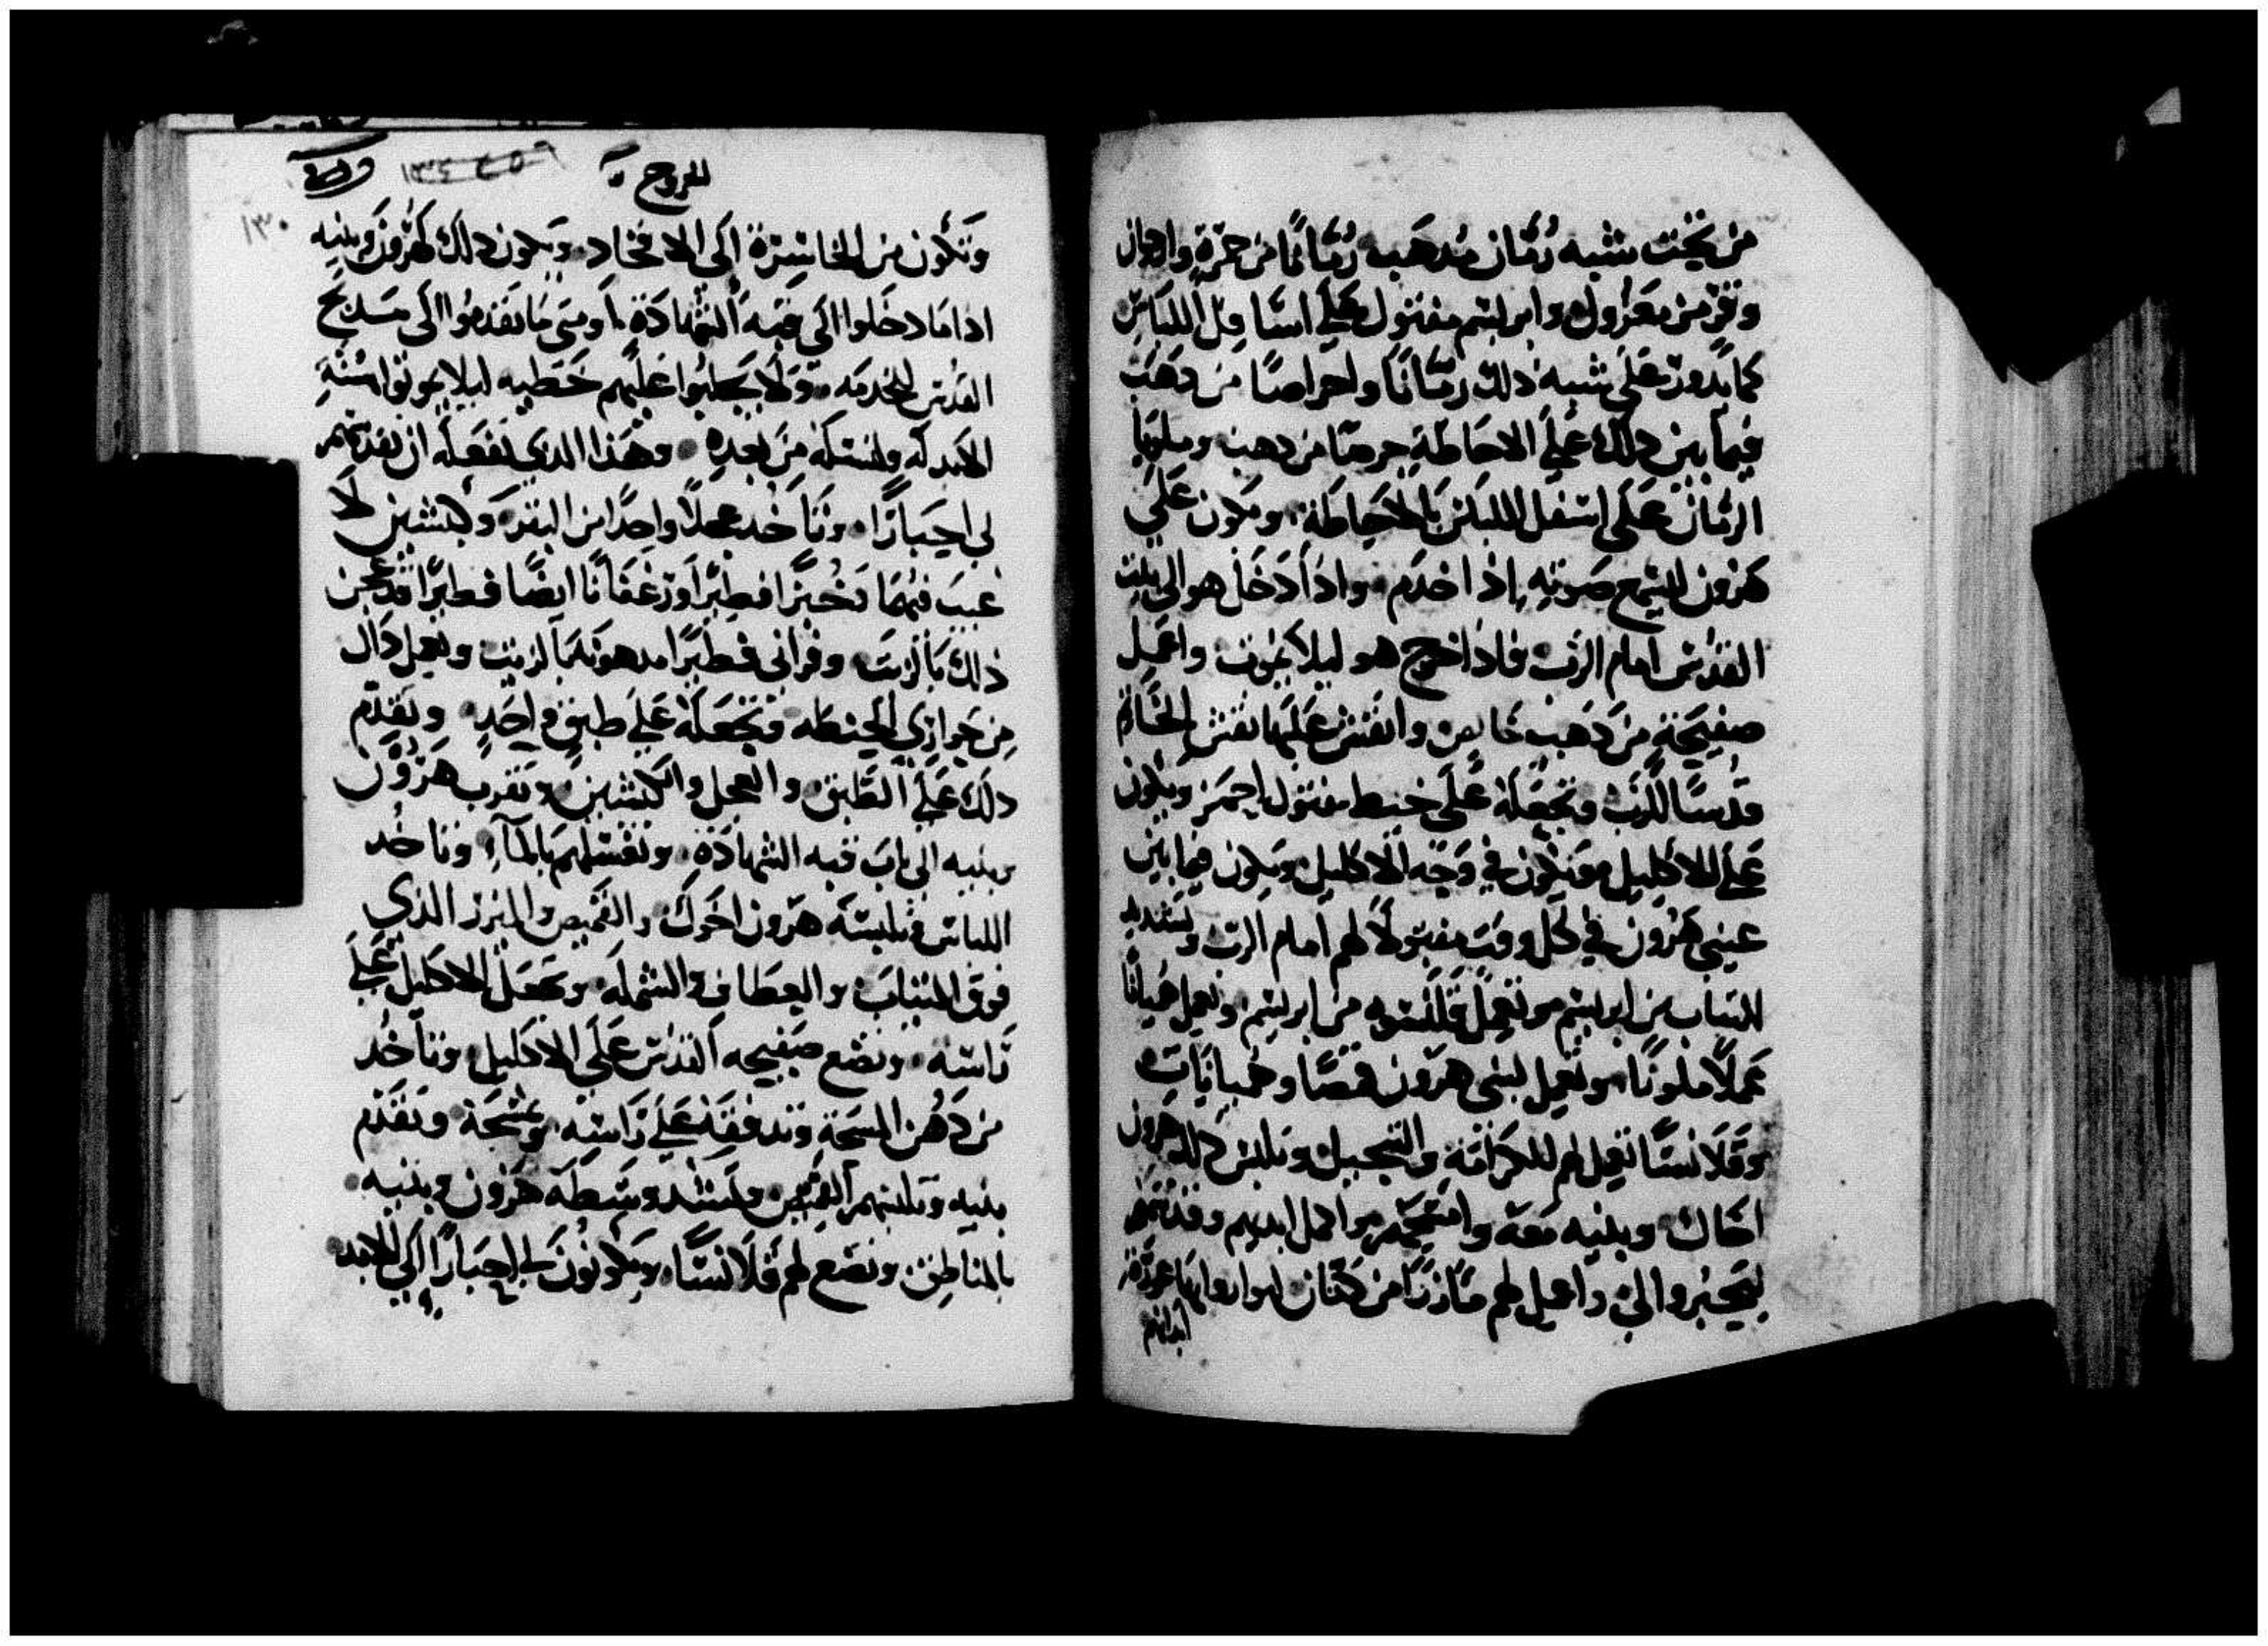 من تحت شبه رمان مدهبه رمانا من حمرة وارجوان
وقز من معزول وابريسم مفتول على اسافل اللباس
كما يدور على شبه ذلك رمانا واجراصا من دهب
فيما بين دلك على الاحاطة جرصا من دهب
الرمان على اسفل اللباس بالاحاطة ويكون على
هرون ليسمع صوته اذا خدم واذا دخل هو الى بيت
القدس امام الرب فاذا خرج هو ليلا يموت واعمل
صفيحة من دهب خالص وانقش عليها نقش الخاتم
قدسا للرب وتجعله على خيط مفتول احمر ويكون
على الاكليل فيكون في وجه الاكليل ويكون فيما بين
عيني هرون في كل وقت مقبولا لهم امام الرب
الثياب من ابريسم وتعمل قلنسوه من ابريسم وتعمل هميانا
عملا ملونا وتعمل لبني هرون قمصا وهميانات
وقلانسا تعمل لهم للكرامة والتبجيل وتلبس دلك هرون
اخاك وبنيه معه وامسحهم واكمل ايديهم وقدسهم
ليحبروا لي واعمل لهم مازرا من كتان ليواروا بها عورة
ابدانهم
الخروج
١٣٠
وتكون من الخاسرة الى الافخاد ويكون دلك لهرون وبنيه
اذا ما دخلوا الى قبه الشهادة او متى ما تقدموا الى مذبح
القدس للخدمه ولا يجلبوا عليهم خطيه ليلا يموتوا سنة
الابد له ولنسله من بعده وهذا الدي تفعله ان تقدسهم
لي احبارا وتاخد عجلا واحدا من البقر وكبشين لا
عيب فيهما وخبزا فطيرا ورغفانا ايضا فطيرا قد عجن
ذلك بالزيت وفراني فطيرا مدهونه بالزيت وتعمل داك
من حواري الحنطه وتجعله على طبق واحد وتقدم
دلك على الطبق والعجل والكبشين وتقرب هرون
وبنيه الى باب قبه الشهادة وتغسلهم بالماء وتاخد
اللباس وتلبسه هرون اخوك والقميص والميزر الذي
فوق المنتاب والعطاف والشمله وتجعل الاكليل على
راسه وتضع صفيحه القدس على الاكليل وتاخد
من دهن المسحة وتدفقه على راسه وتمسحه وتقدم
بنيه وتلبسهم القميص وتشد وسطه هرون وبنيه
بالمناطق وتضع لهم قلانسا ويكونون لي احبارا الى الابد